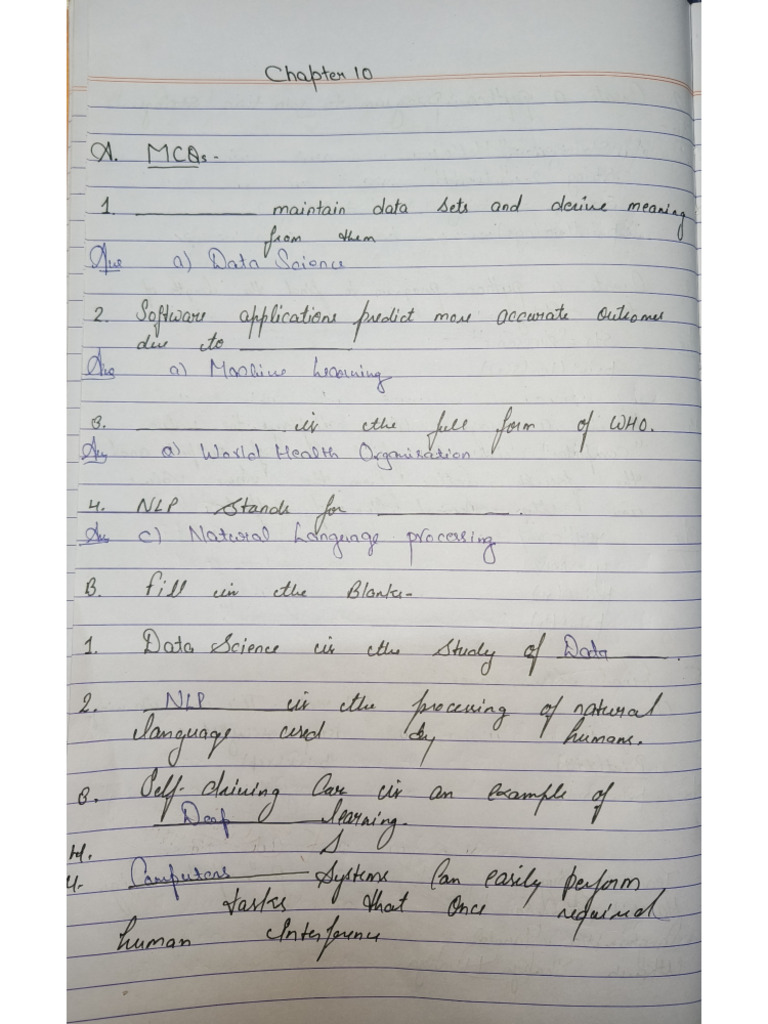 Chapter 10
A. MCQs-
1. __________ maintain data sets and derive meaning
from them
Ans a) Data Science
2. Software applications predict more accurate outcomes
due to __________
Ans a) Machine Learning
3. __________ is the full form of WHO.
Ans a) World Health Organisation
4. NLP Stands for __________.
Ans c) Natural Language processing
B. Fill in the Blanks-
1. Data Science is the Study of Data ____.
2. __NLP____ is the processing of natural
language used by humans.
3. Self-driving Car is an example of
__Deep______ learning.
4.
4. Computers______ Systems Can easily perform
tasks that Once required
human Interference